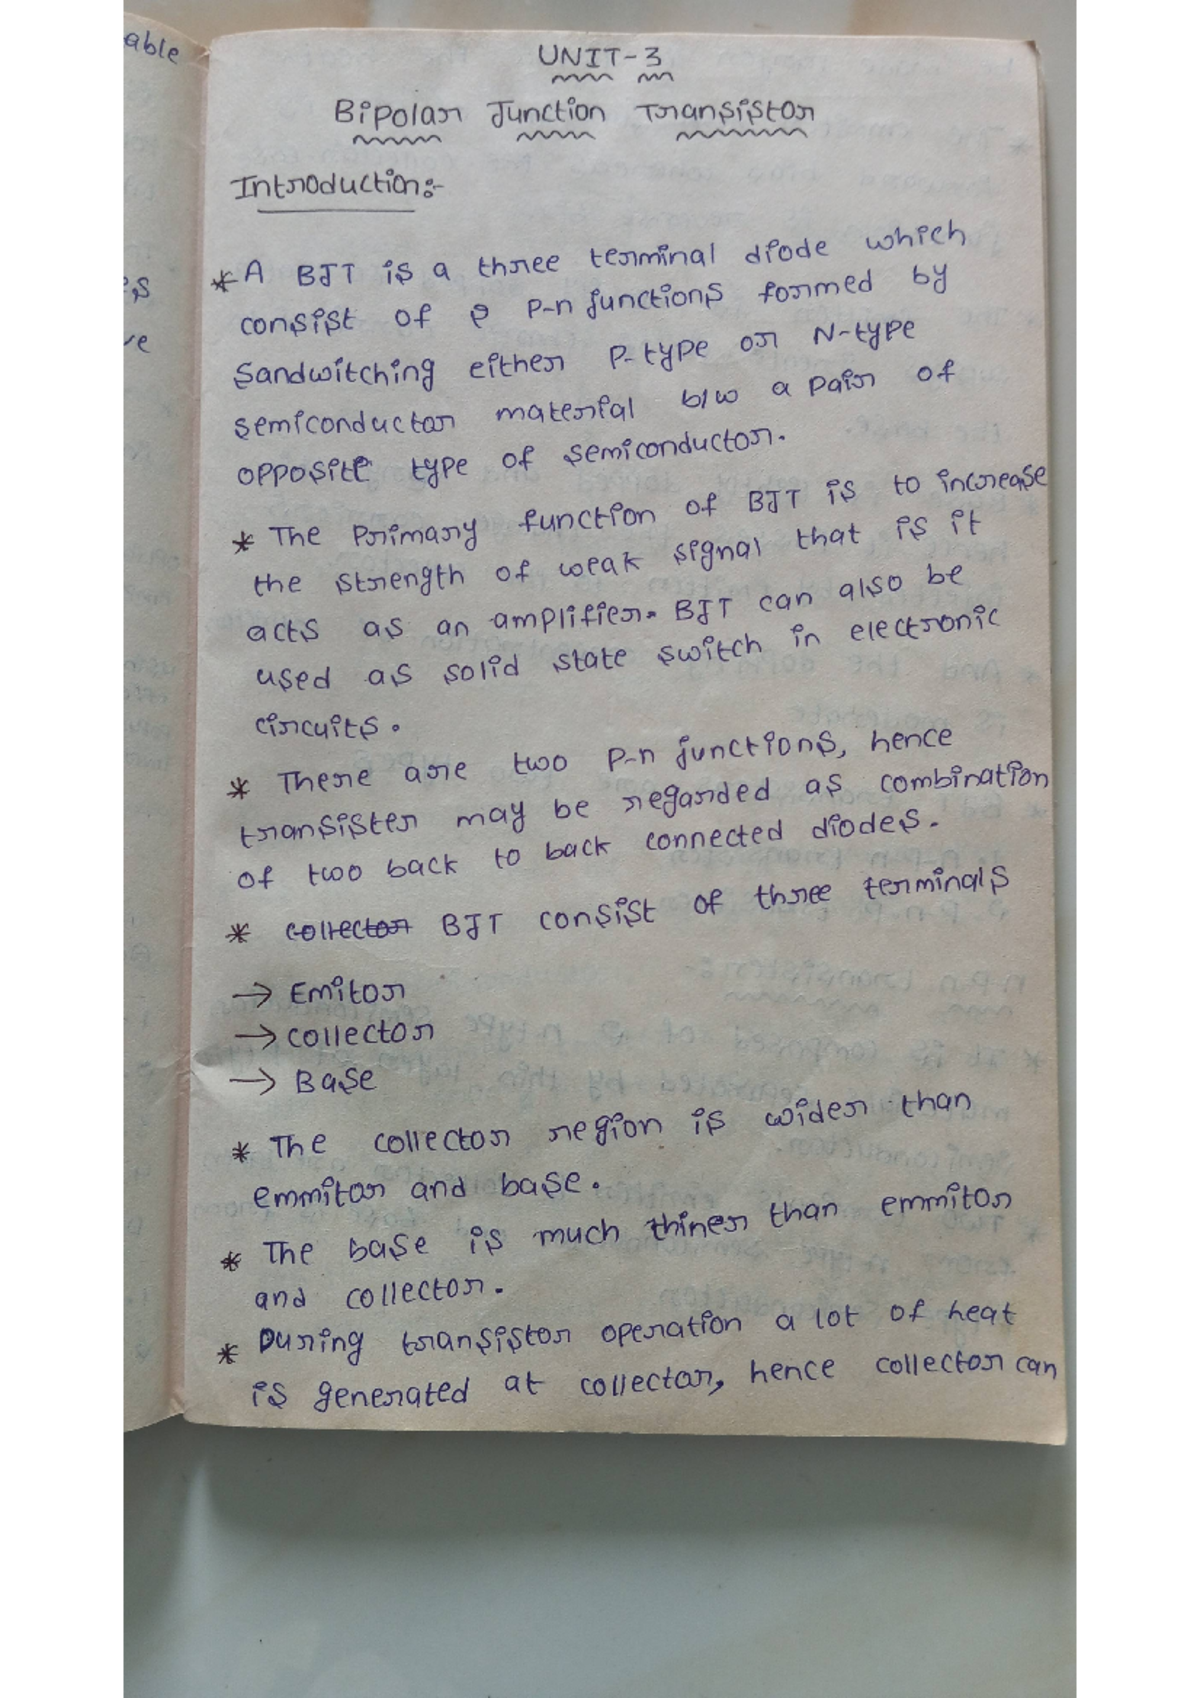 able
UNIT-3
Bipolar Junction Transistor
Introduction:-
es
ve
* A BJT is a three terminal diode which
consist of 2 P-n junctions formed by
sandwitching either P-type or N-type
semiconductor material b/w a pair of
opposite type of semiconductor.
* The Primary function of BJT is to increase
the strength of weak signal that is it
acts as an amplifier. BJT can also be
used as solid state switch in electronic
circuits.
* There are two P-n junctions, hence
transister may be regarded as combination
of two back to back connected diodes.
* collector BJT consist of three terminals
→ Emitor
→ collector
→ Base
* The collector region is wider than
emmitor and base.
* The base is much thiner than emmitor
and collector.
* During transistor operation a lot of heat
is generated at collector, hence collector can